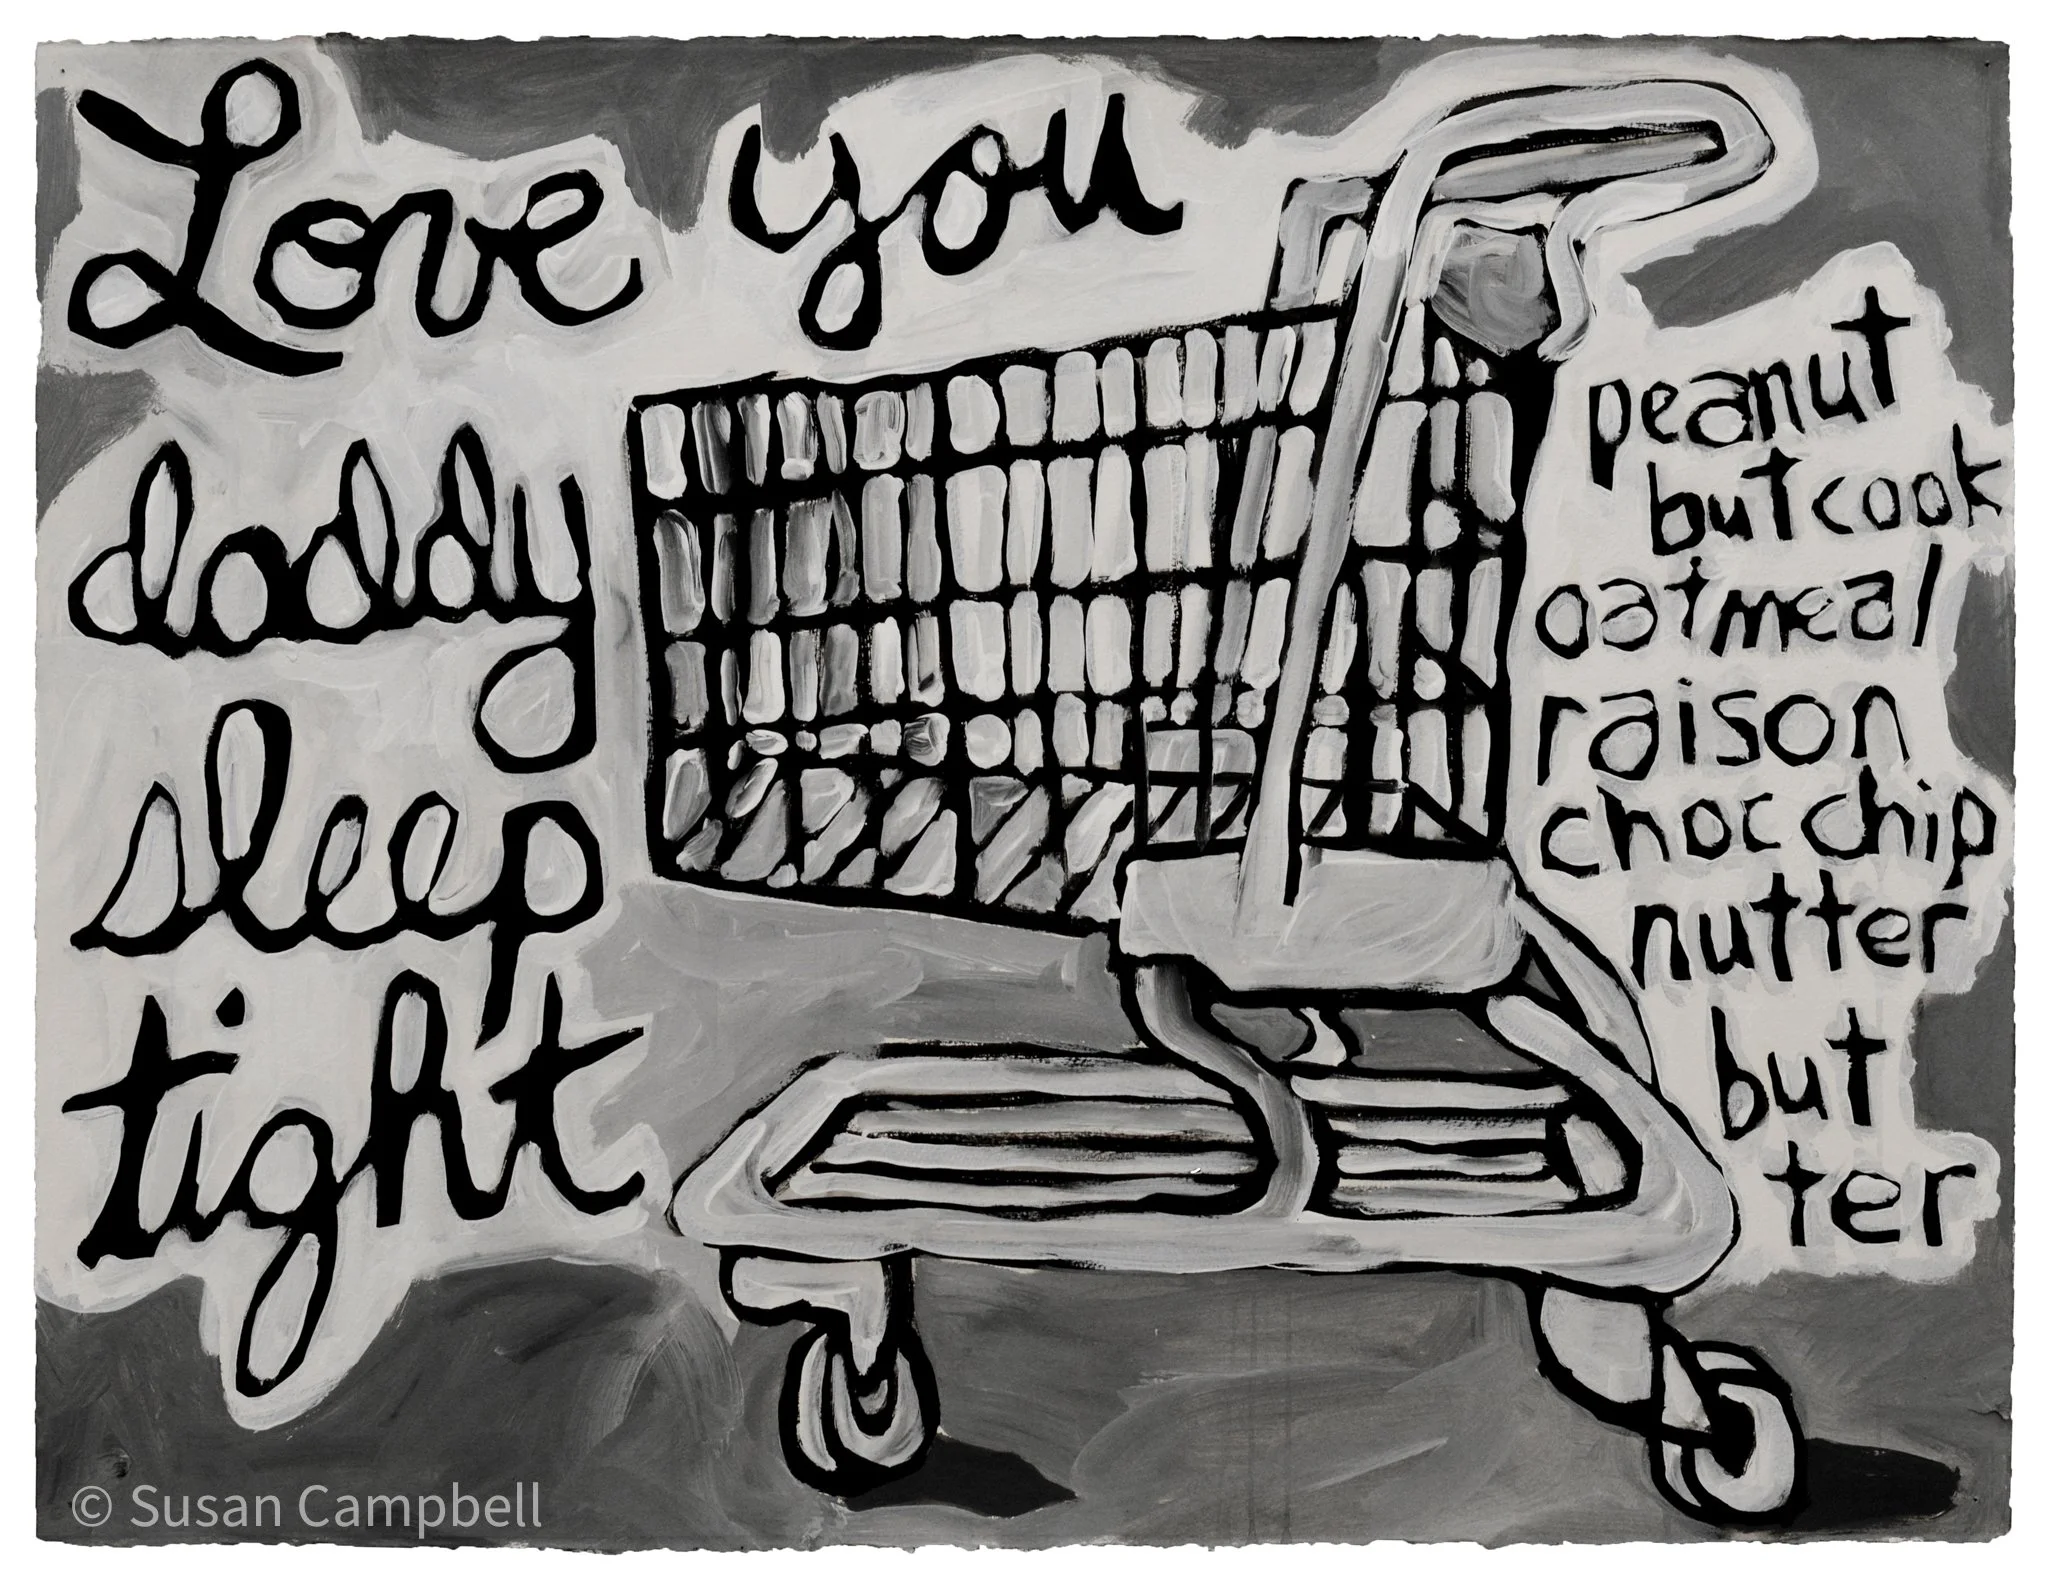 Love you
daddy
sleep
tight
peanut
but cook
oatmeal
raison
choc chip
nutter
but
ter
© Susan Campbell